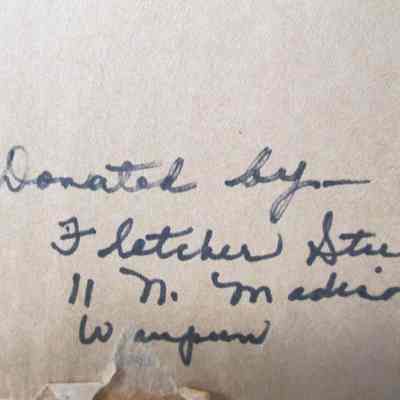 Donated by—
Fletcher Ste
11 N. Madiso
Waupun